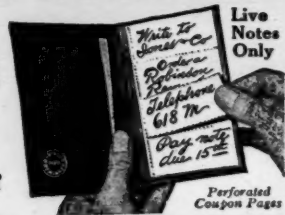 Live
Notes
Only
Write to
Jones & Co
Order
Robinson
Telephone
618 M
Pay note
due 15th
Perforated
Coupon Pages